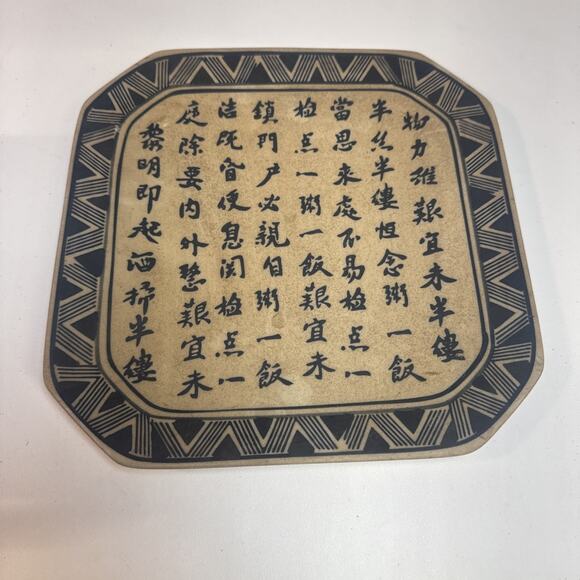 黎明即起洒掃半縷
庭除要内外整艱宜未
洁既昏便息関检点一
鎖門户必親自粥一飯
检点一粥一飯艱宜未
當思来處不易检点一
半丝半縷恒念粥一飯
物力維艱宜未半縷